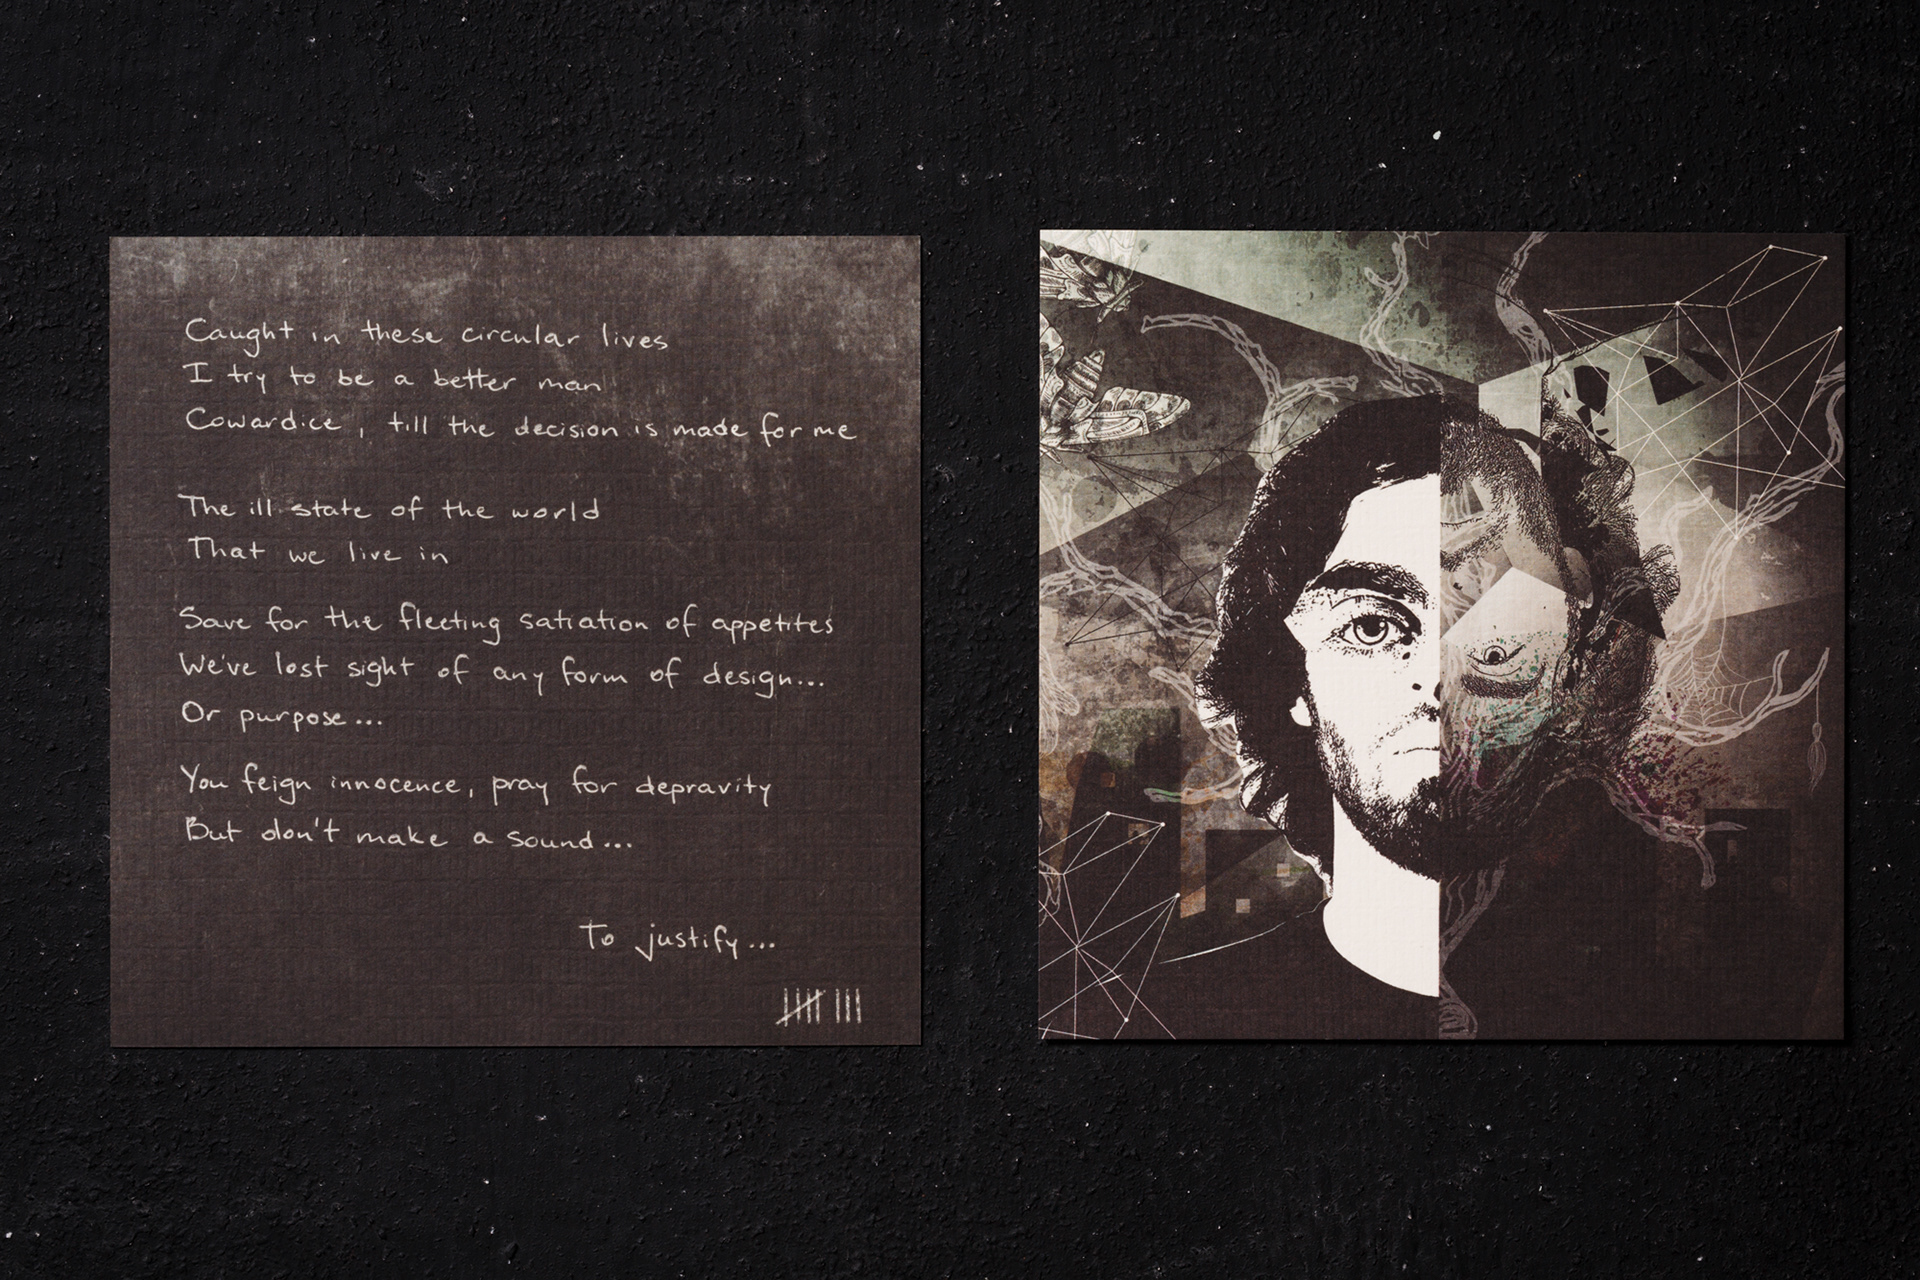 Caught in these circular lives
I try to be a better man
Cowardice, till the decision is made for me
The ill state of the world
That we live in
Save for the fleeting satiation of appetites
We've lost sight of any form of design...
Or purpose...
You feign innocence, pray for depravity
But don't make a sound...
To justify...